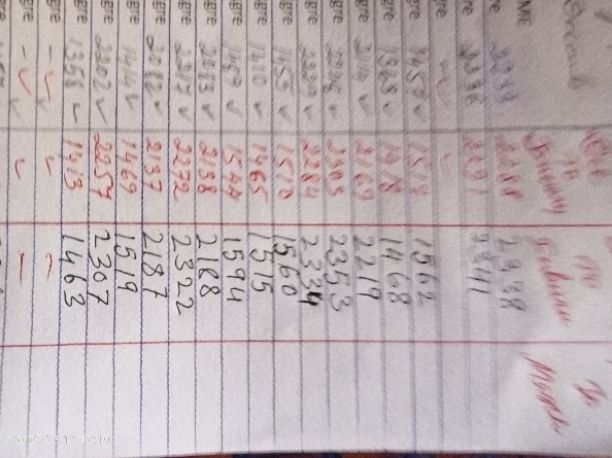 To To To
ME
gre 2233 2288 2338
gre 2236 2291 2341
gre - ✓ ✓
gre 1457 ✓ 1512 1562
gre 1363 ✓ 1418 1468
gre 2114 ✓ 2169 2219
gre 2248 ✓ 2303 2353
gre 2229 ✓ 2284 2334
gre 1455 ✓ 1510 1560
gre 1410 ✓ 1465 1515
gre 1489 ✓ 1544 1594
gre 2083 ✓ 2138 2188
gre 2217 ✓ 2272 2322
gre 2082 ✓ 2137 2187
gre 1414 ✓ 1469 1519
gre 2202 ✓ 2257 2307
gre 1358 ✓ 1413 1463
gre - ✓ ✓ -
gre - ✓ ✓ -